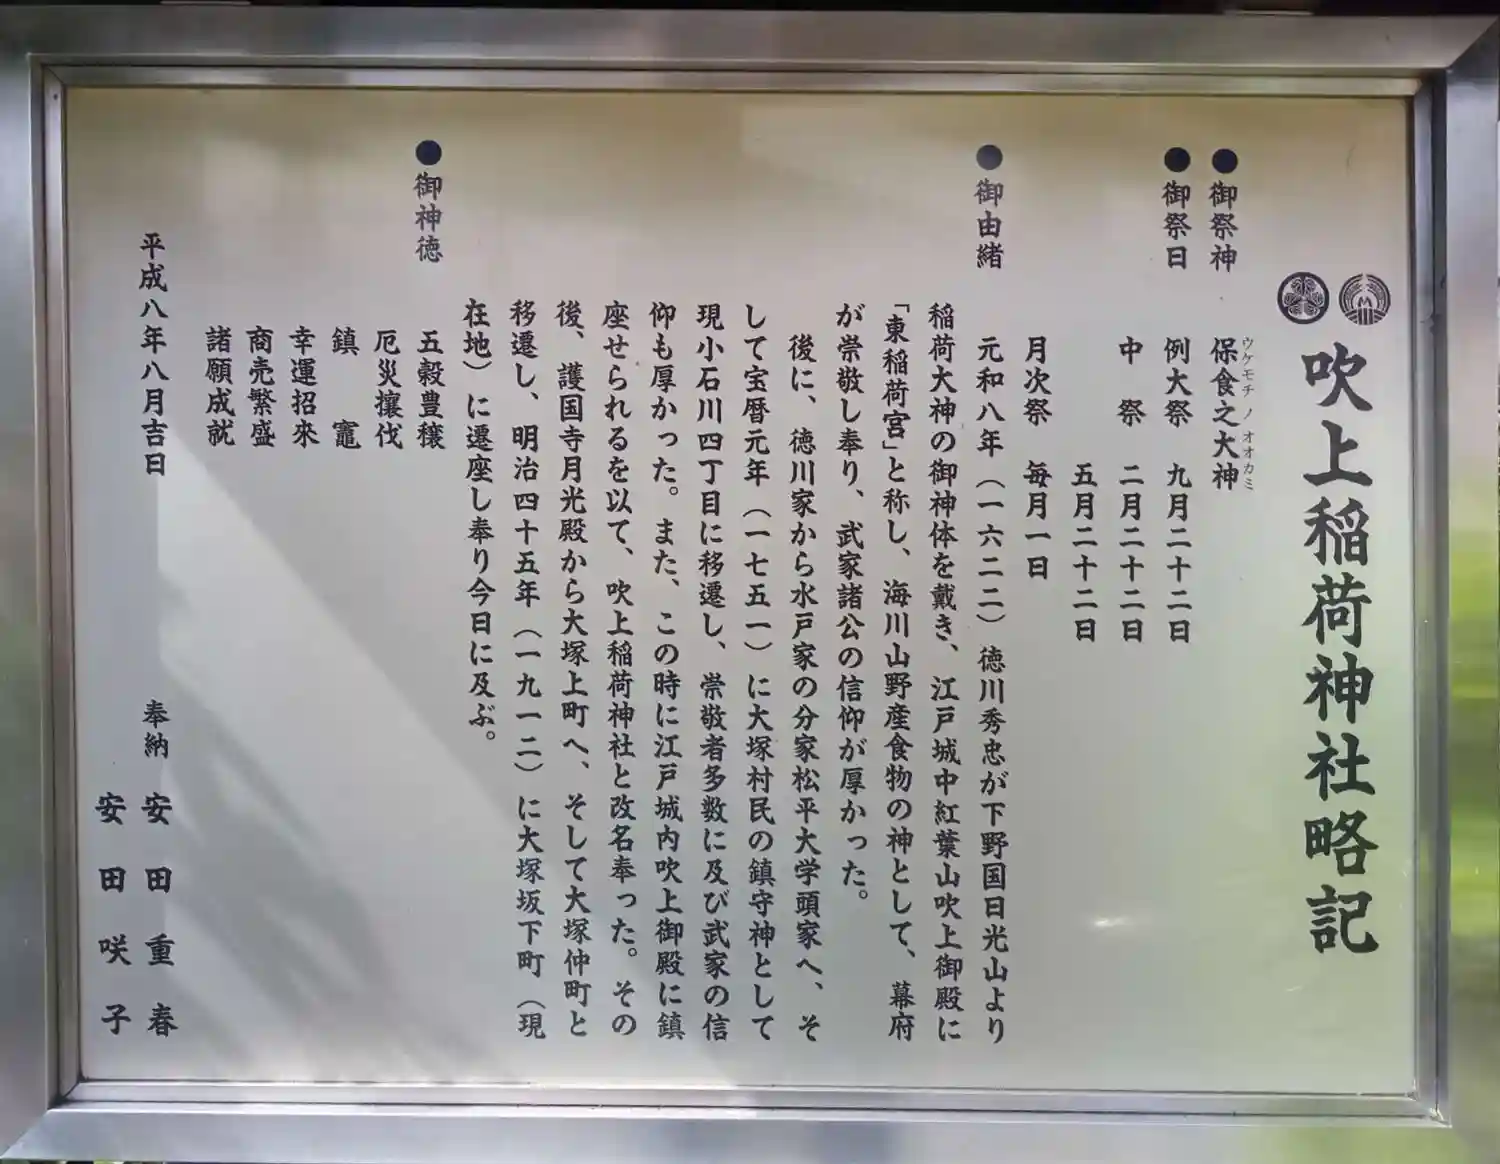 吹上稲荷神社略記
●御祭神 保食之大神
ウケモチノオオカミ
●御祭日 例大祭 九月二十二日
中祭 二月二十二日
五月二十二日
月次祭 毎月一日
●御由緒 元和八年（一六二二）徳川秀忠が下野国日光山より
稲荷大神の御神体を戴き、江戸城中紅葉山吹上御殿に
「東稲荷宮」と称し、海川山野産食物の神として、幕府
が崇敬し奉り、武家諸公の信仰が厚かった。
後に、徳川家から水戸家の分家松平大学頭家へ、そ
して宝暦元年（一七五一）に大塚村民の鎮守神として
現小石川四丁目に移遷し、崇敬者多数に及び武家の信
仰も厚かった。また、この時に江戸城内吹上御殿に鎮
座せられるを以て、吹上稲荷神社と改名奉った。その
後、護国寺月光殿から大塚上町へ、そして大塚仲町と
移遷し、明治四十五年（一九一二）に大塚坂下町（現
在地）に遷座し奉り今日に及ぶ。
●御神徳 五穀豊穣
厄災攘伐
鎮竈
幸運招来
商売繁盛
諸願成就
平成八年八月吉日 奉納 安田重春
安田咲子